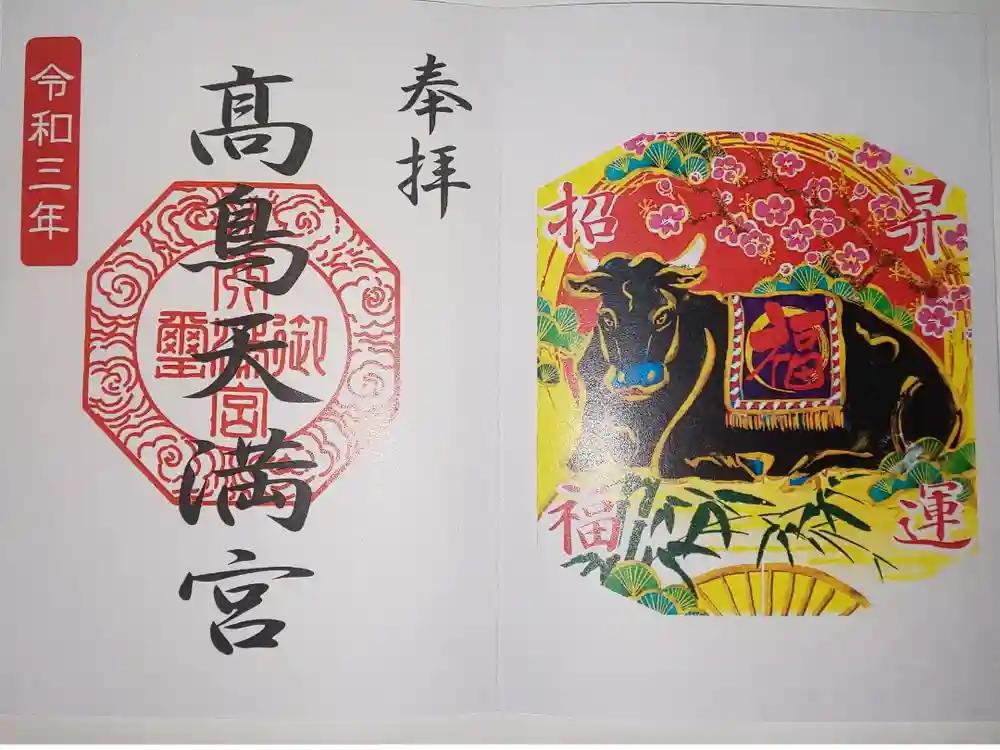 奉拝
髙鳥天満宮
令和三年
昇運
招福
福